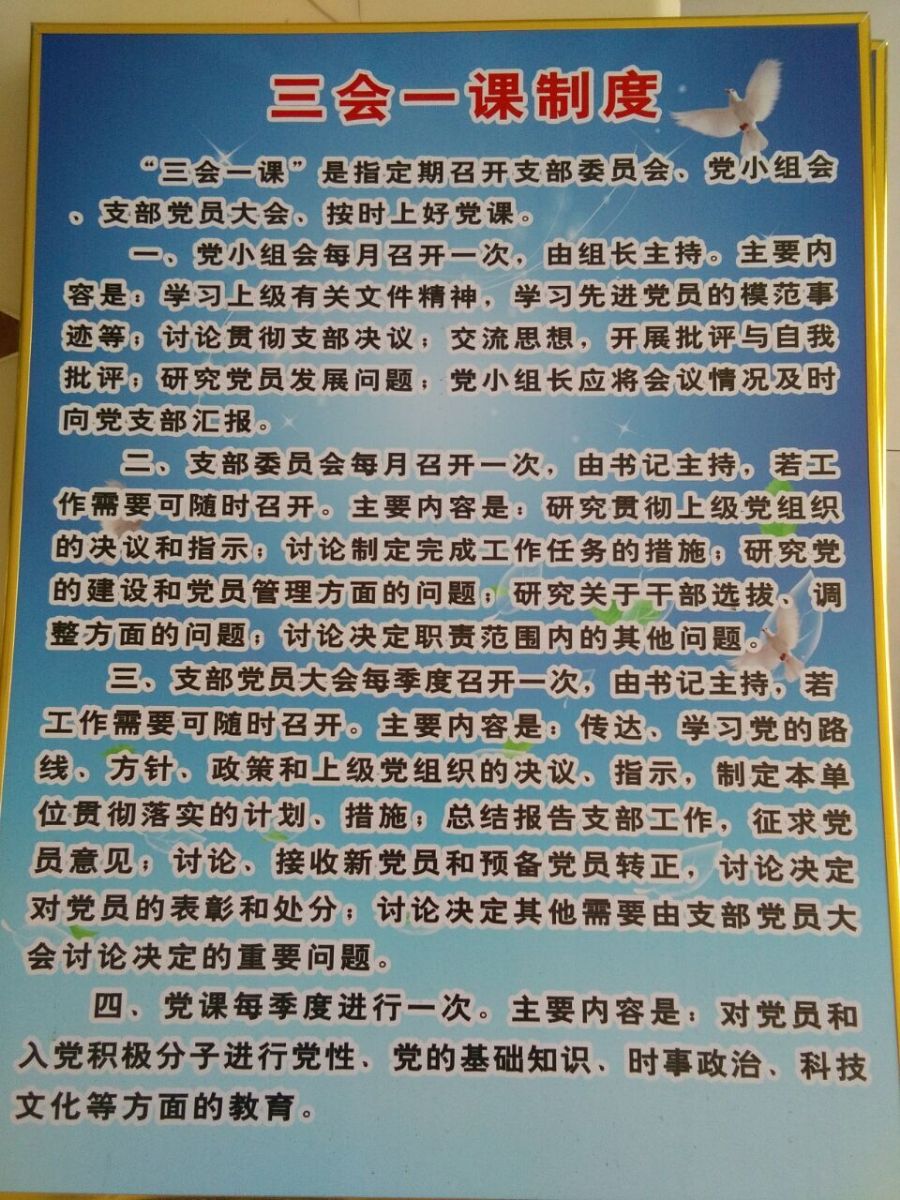 三会一课制度
“三会一课”是指定期召开支部委员会、党小组会
、支部党员大会、按时上好党课。
一、党小组会每月召开一次，由组长主持。主要内
容是：学习上级有关文件精神，学习先进党员的模范事
迹等；讨论贯彻支部决议；交流思想，开展批评与自我
批评；研究党员发展问题；党小组长应将会议情况及时
向党支部汇报。
二、支部委员会每月召开一次，由书记主持，若工
作需要可随时召开。主要内容是：研究贯彻上级党组织
的决议和指示；讨论制定完成工作任务的措施；研究党
的建设和党员管理方面的问题；研究关于干部选拔、调
整方面的问题；讨论决定职责范围内的其他问题。
三、支部党员大会每季度召开一次，由书记主持，若
工作需要可随时召开。主要内容是：传达、学习党的路
线、方针、政策和上级党组织的决议、指示，制定本单
位贯彻落实的计划、措施；总结报告支部工作，征求党
员意见；讨论、接收新党员和预备党员转正，讨论决定
对党员的表彰和处分；讨论决定其他需要由支部党员大
会讨论决定的重要问题。
四、党课每季度进行一次。主要内容是：对党员和
入党积极分子进行党性、党的基础知识、时事政治、科技
文化等方面的教育。